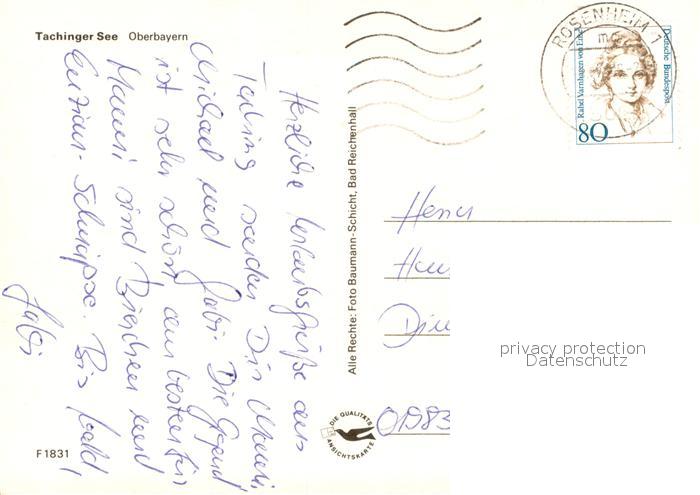 Tachinger See Oberbayern
Herzliche Urlaubsgrüße aus
Taching senden Dir Mausi,
Michael und Gabi. Die Gegend
ist sehr schön, am besten für
Mausi sind Bierchen und
Enzian-Schnäpse. Bis bald,
Gabi
F1831
Alle Rechte: Foto Baumann-Schicht, Bad Reichenhall
DIE QUALITÄTS
ANSICHTSKARTE
ROSENHEIM 1
Rahel Varnhagen von Ense
Deutsche Bundespost
80
Herrn
0 1983
privacy protection
Datenschutz